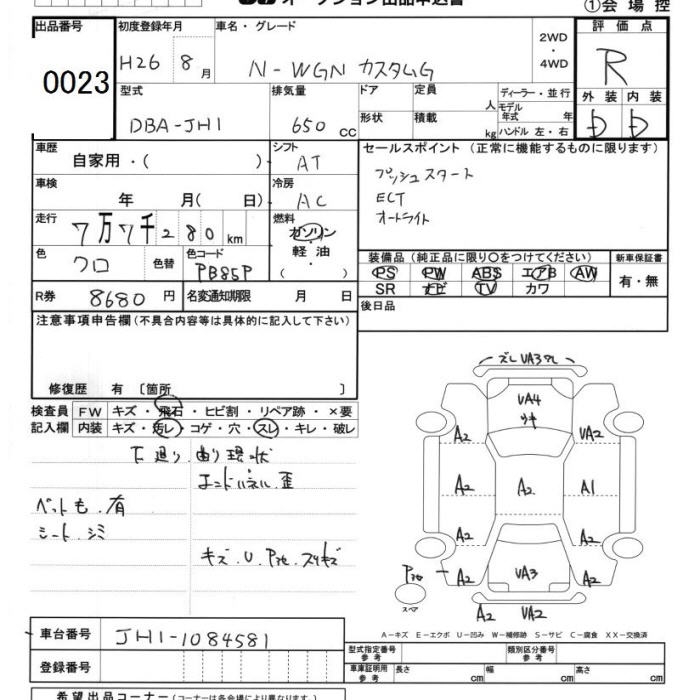 ①会場控
出品番号 初度登録年月 車名・グレード 評価点
0023 H26 8月 N-WGN カスタムG 2WD・4WD R
型式 排気量 ドア 定員 人 ディーラー・並行 外装 内装
DBA-JH1 650 CC 形状 積載 kg モデル年式 年 ハンドル 左・右 D D
車歴 自家用・( ) シフト AT セールスポイント(正常に機能するものに限ります)
車検 年 月(日) 冷房 AC プッシュスタート
ECT
オートライト
走行 7万7千280km 燃料 ガソリン・軽油・( )
色 クロ 色替 色コード PB85P
装備品(純正品に限り○をつけてください) 新車保証書
PS PW ABS エアB AW 有・無
SR ナビ TV カワ
R券 8680円 名変通知期限 月 日 後日品
注意事項申告欄(不具合内容等は具体的に記入して下さい)
修復歴 有〔箇所 〕
検査員記入欄 FW キズ・飛石・ヒビ割・リペア跡・×要
内装 キズ・汚レ・コゲ・穴・スレ・キレ・破レ
下廻り・曲り現状
エンドパネル歪
ペット毛・有
シート・シミ
キズ・U・
ズレ VA3
VA4
A2 VA2
A2 A2 A1
A2 A2
A2 VA3 A2
スペア A2 VA2
A-キズ E-エクボ U-凹み W-補修跡 S-サビ C-腐食 XX-交換済
車台番号 JH1-1084581
登録番号
型式指定番号 参考 類別区分番号 参考
車庫証明用 参考 長さ cm 幅 cm 高さ cm
希望出品コーナー(コーナーは各会場により異なります)